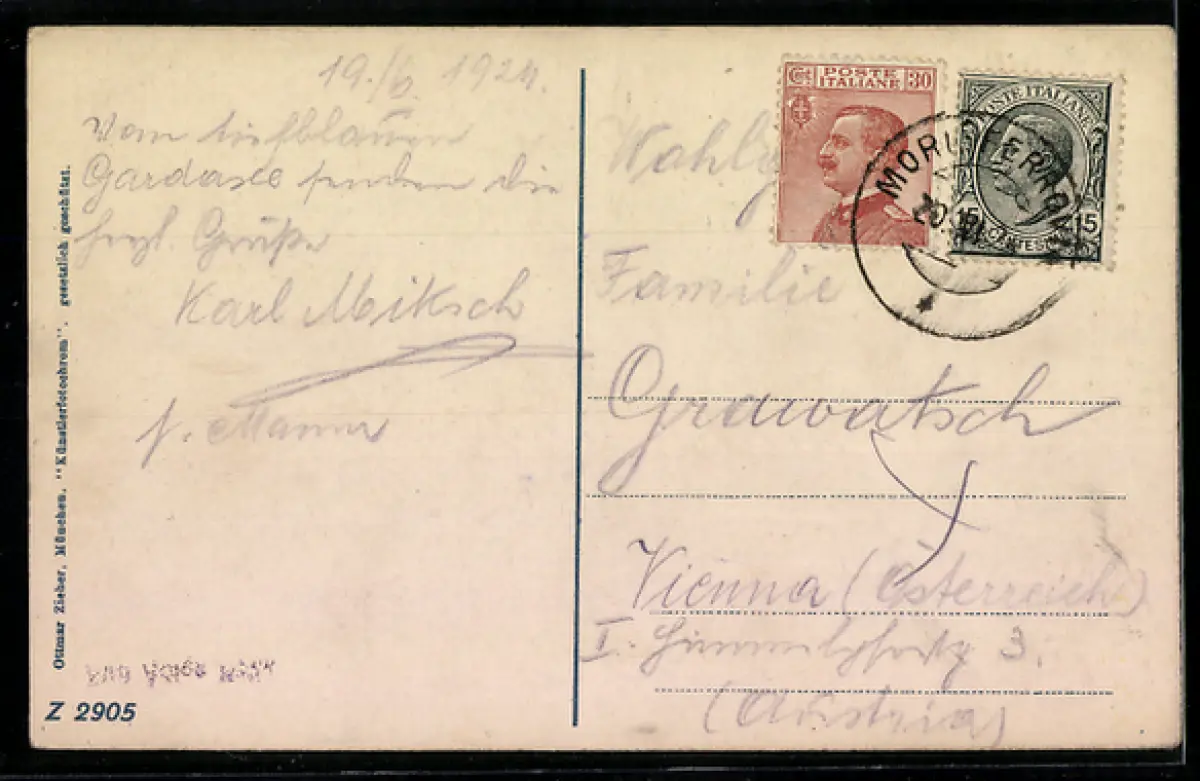 19./6. 1924.
Vom tiefblauen
Gardasee senden die
herzl. Grüße
Karl Miksch
Ottmar Zieher, München. "Künstlerfotochrom". gesetzlich geschützt.
Z 2905
Cent POSTE ITALIANE 30
POSTE ITALIANE
15 15
MORI
20
Familie
Grawatsch
Vienna (Österreich)
I. 3.
(Austria)